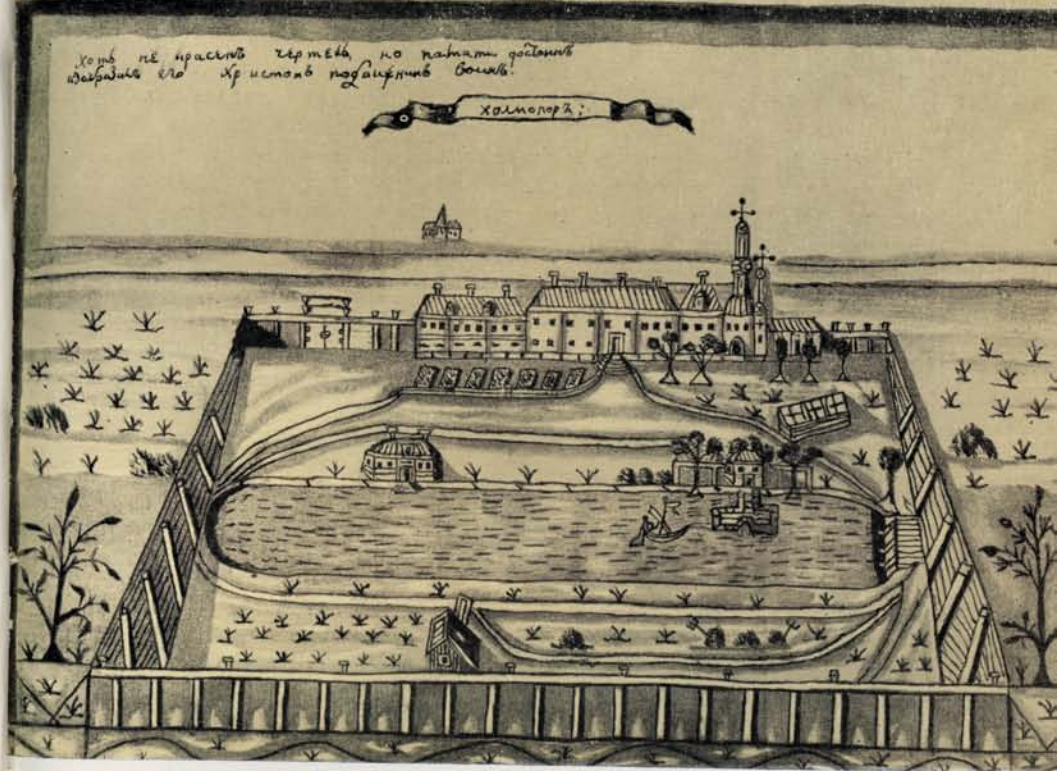 хоть не красенъ чертежъ, но памяти достоинъ
изобразилъ его Христовъ подвижникъ воинъ.
холмогоръ;